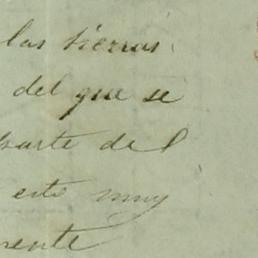 las tierras
del que se
parte del
está muy
mente